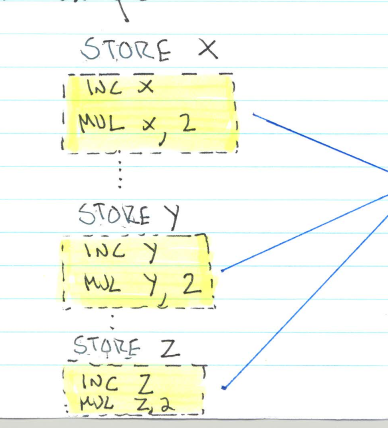 STORE X
INC X
MUL X, 2
STORE Y
INC Y
MUL Y, 2
STORE Z
INC Z
MUL Z, 2